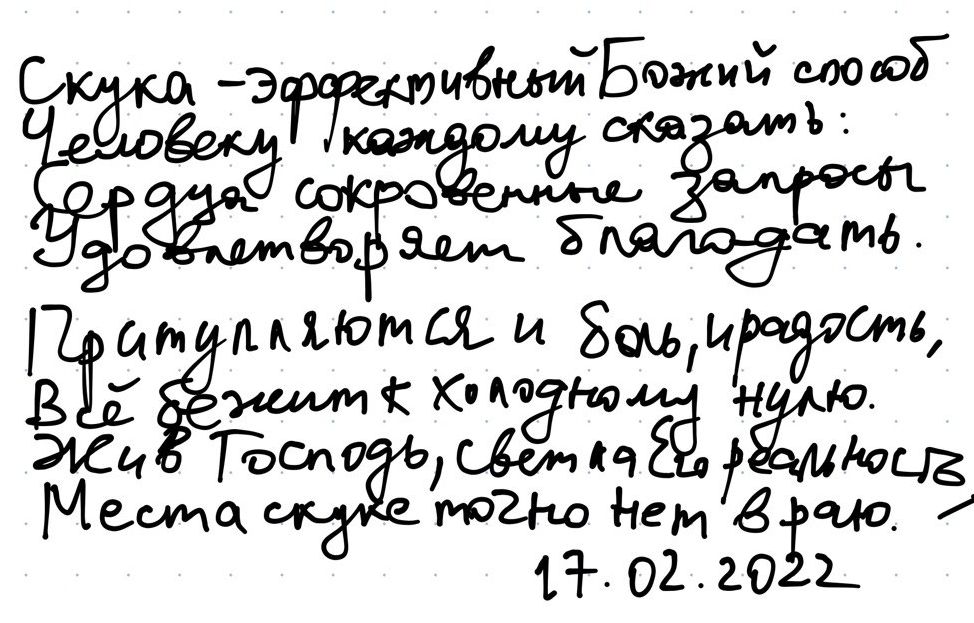 Скука – эффективный Божий способ
Человеку каждому сказать:
Сердца сокровенные запросы
Удовлетворяет благодать.
Притупляются и боль, и радость,
Всё бежит к холодному нулю.
Жив Господь, светла Его реальность,
Места скуке точно нет в раю.
17.02.2022